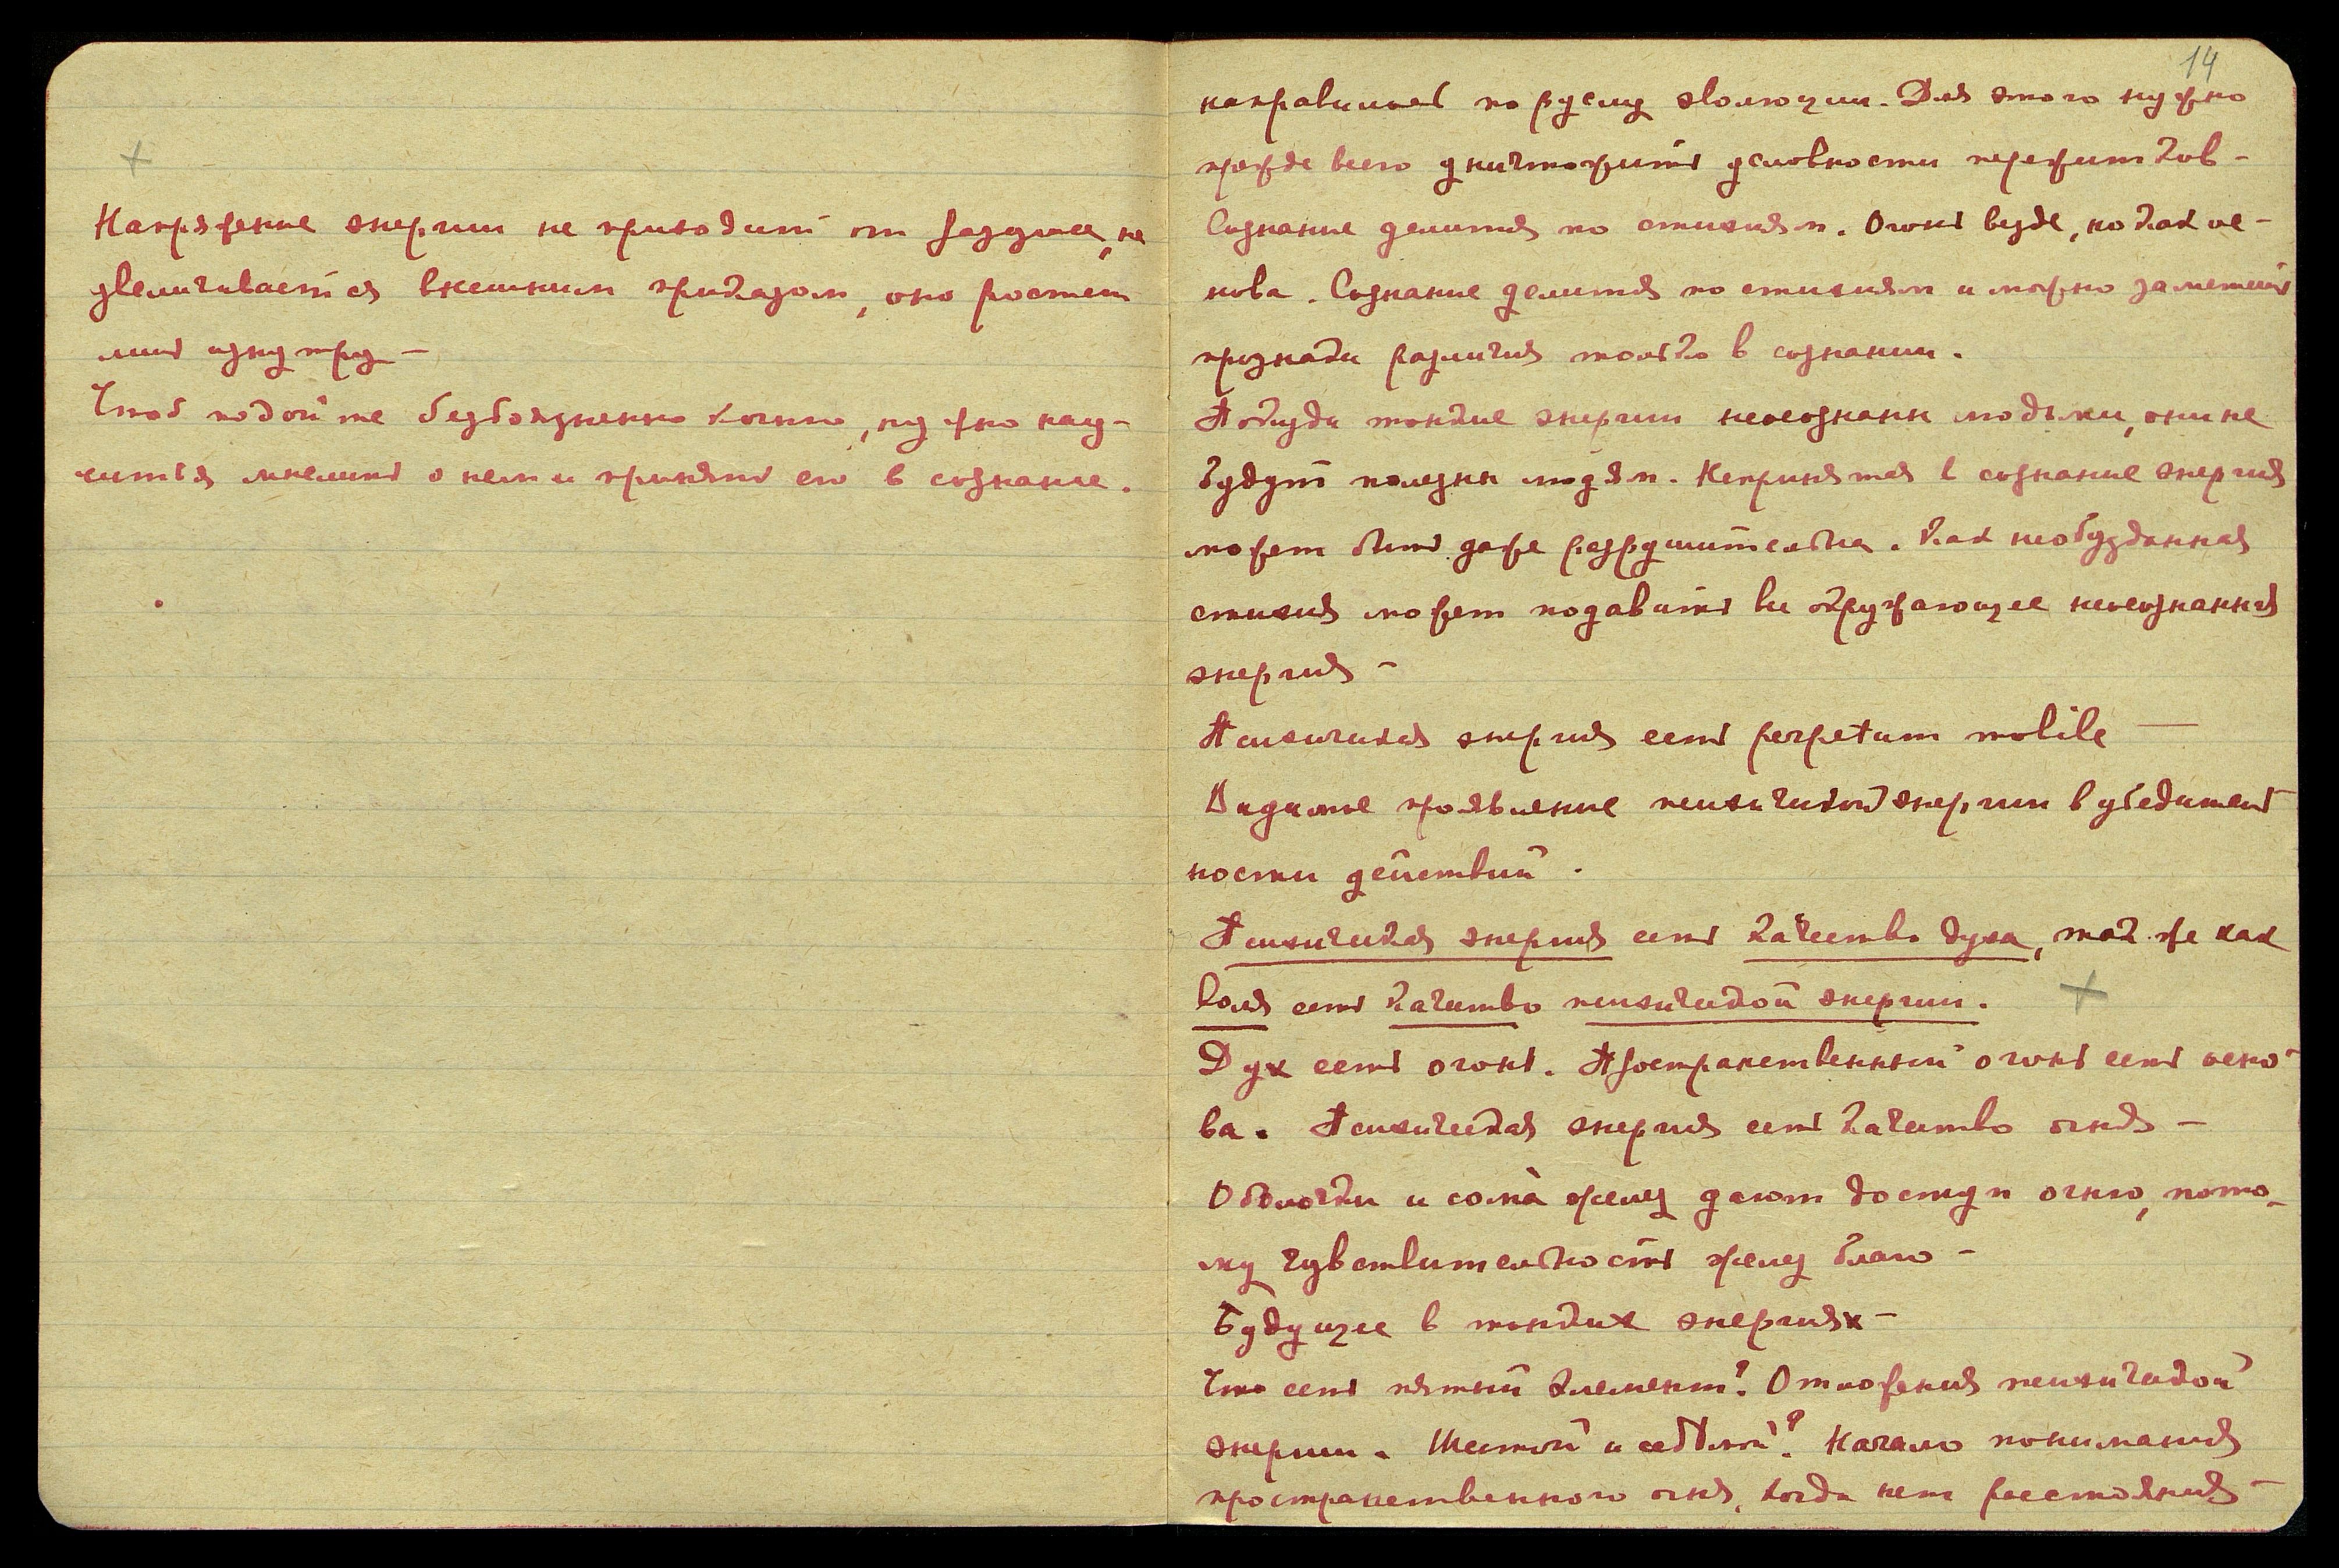 Напряжение энергии не приходит от раздумья, не
увеличивается внешним приказом, оно ростет
лишь изнутри —
Чтоб подойти безбоязненно к огню, нужно нау-
читься мыслить о нем и принять его в сознание.
14
направились по руслу эволюции. Для этого нужно
прежде всего уничтожить условности пережитков —
Сознание делится по стихиям. Огонь везде, но как ос-
нова. Сознание делится по стихиям и можно заметить
признаки различия только в сознании.
Покуда тонкие энергии неосознаны людьми, они не
будут полезны людям. Непринятая в сознание энергия
может быть даже разрушительна. Как необузданная
стихия может подавить все окружающее неосознанная
энергия —
Психическая энергия есть perpetum mobile —
Видимое проявление психической энергии в убедитель
ности действий.
Психическая энергия есть качество духа, так же как
воля есть качество психической энергии.
Дух есть огонь. Пространственный огонь есть осно-
ва. Психическая энергия есть качество огня —
Оболочки и сома̀ желез дают доступ огню, пото-
му чувствительность желез благо —
Будущее в тонких энергиях —
Что есть пятый элемент? Отложения психической
энергии. Шестой и седьмой? Начало понимания
пространственного огня, когда нет расстояния —